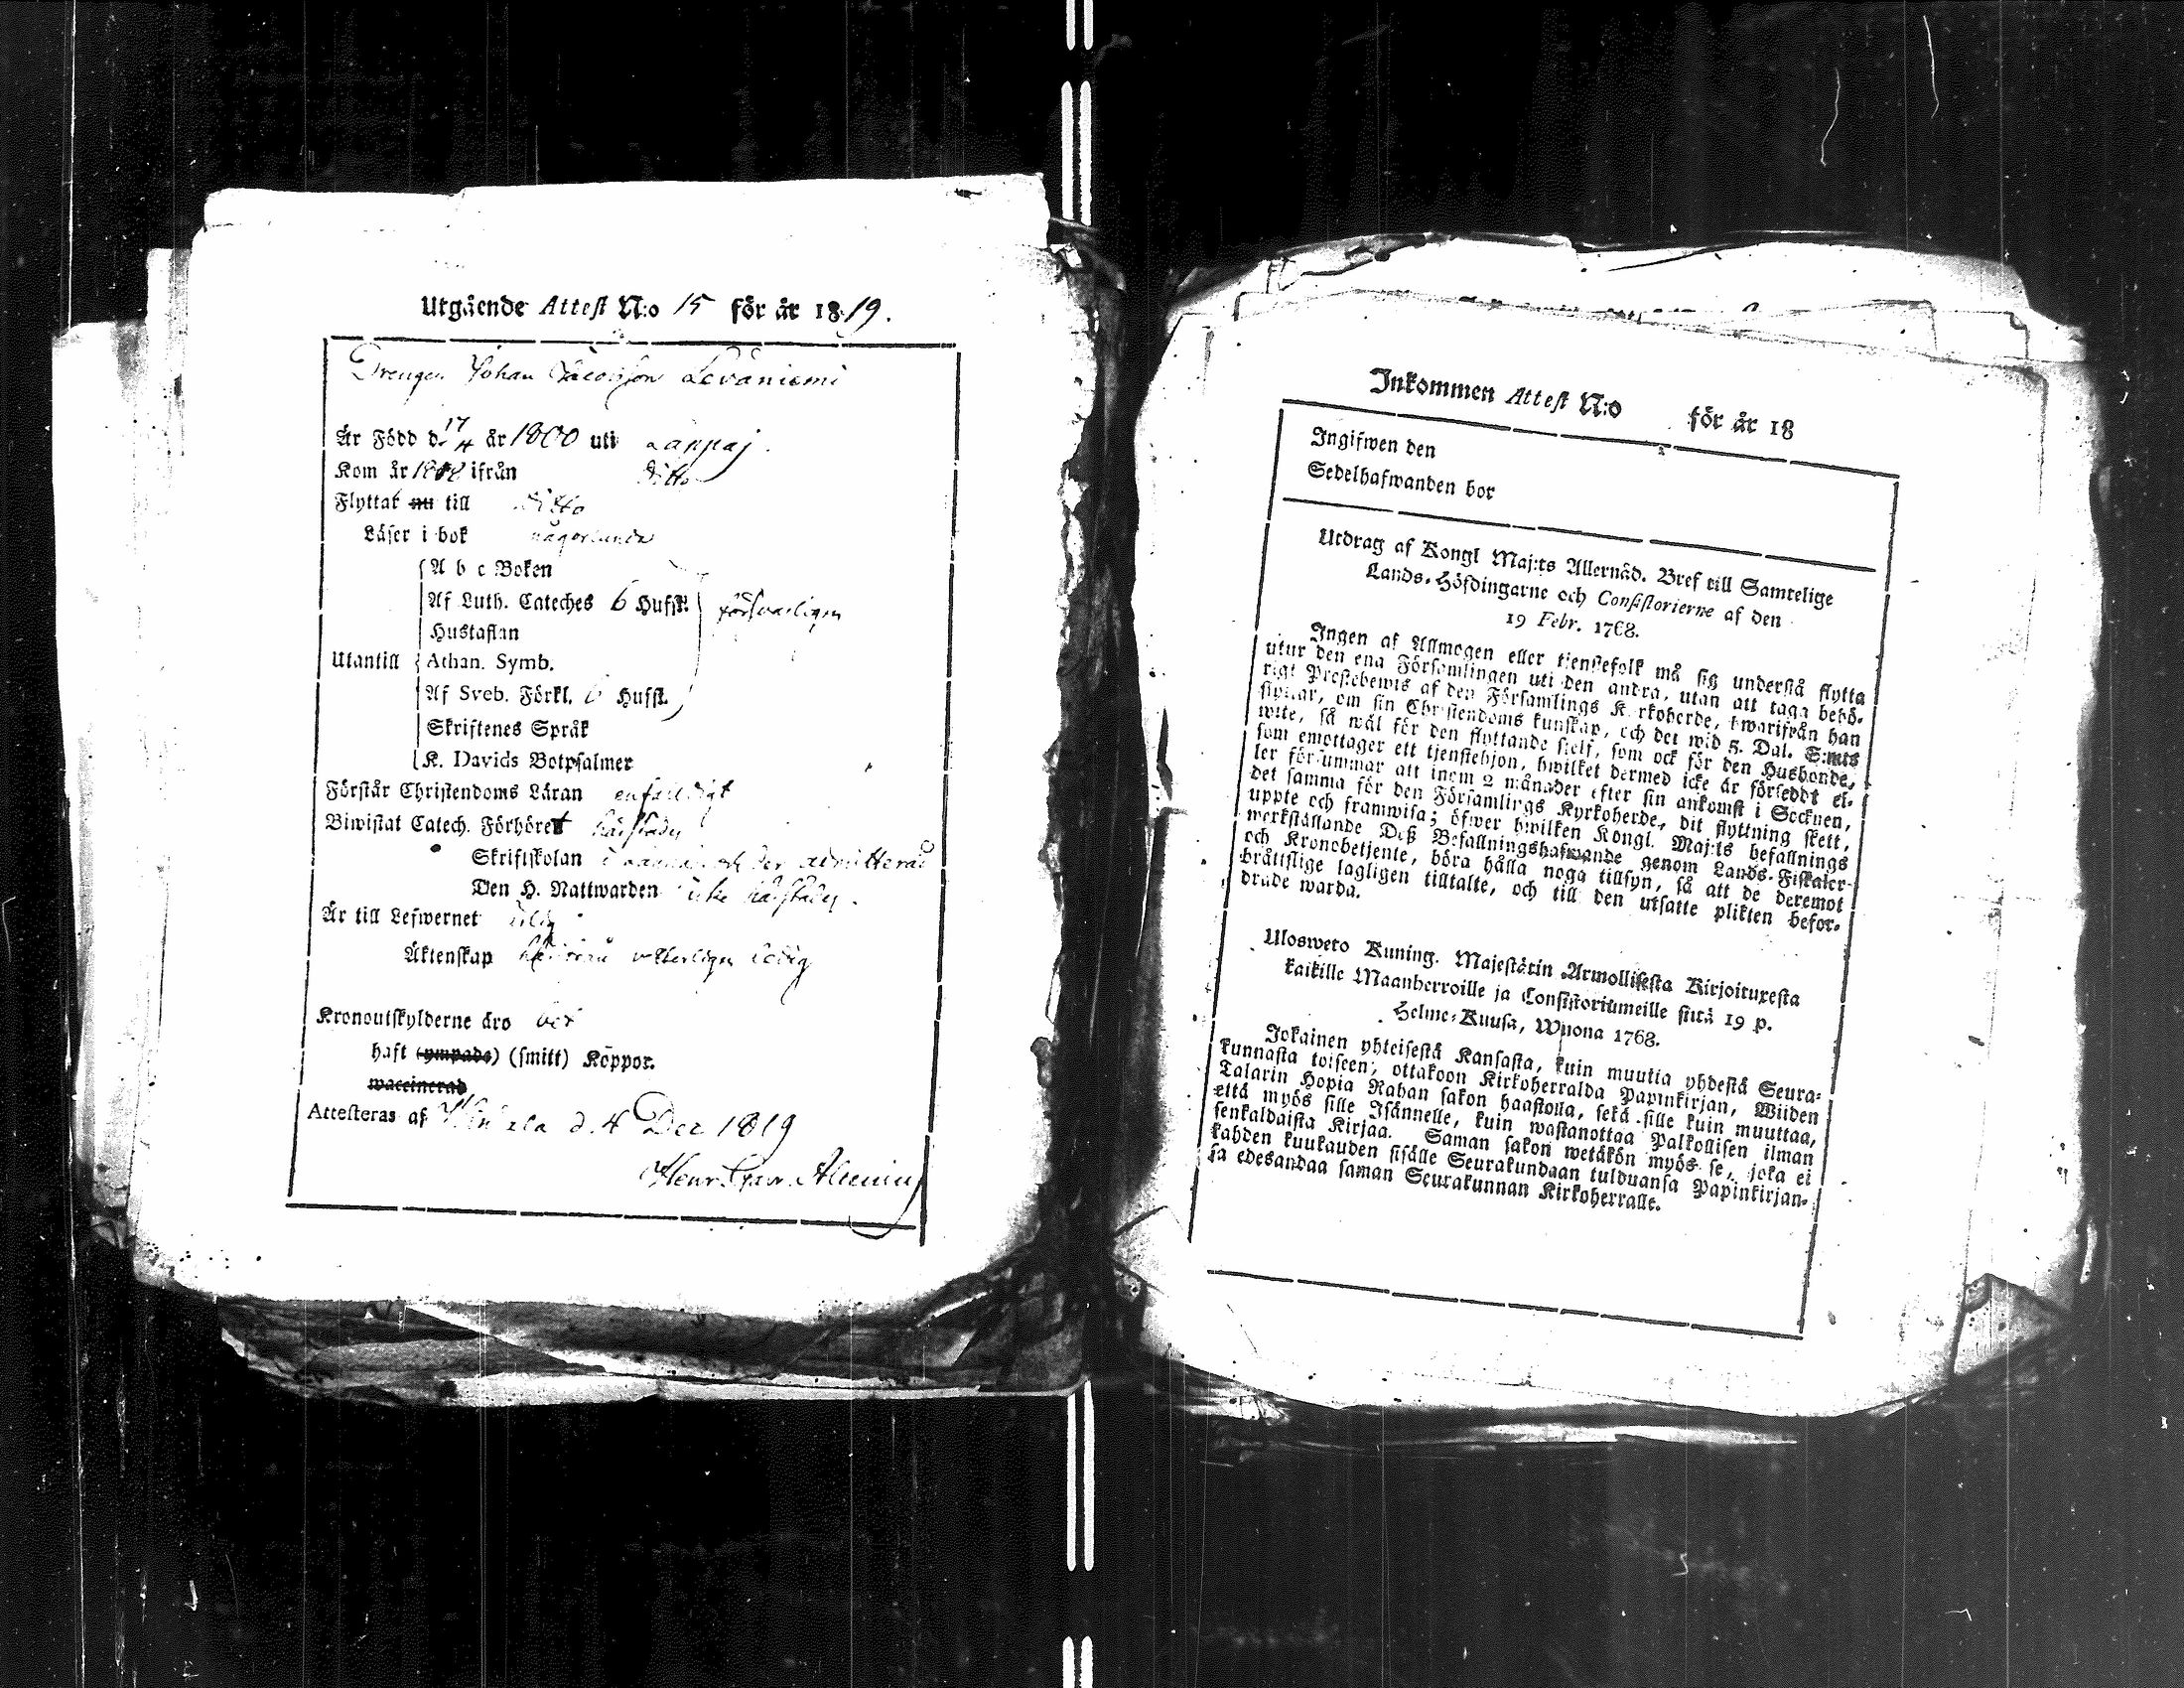 Utgående Attest N:o 15 för år 1819.
Drengen Johan Jacobsson Levåniemi
Är Född d. 17/4 år 1800 uti Lappaj.
Kom år 1818 ifrån Ditto
Flyttat nu till Ditto
Läser i bok någorlunda
A b c Boken
Af Luth. Cateches 6 Hufst. försvarligen
Hustaflan
Utantill Athan. Symb.
Af Sveb. Förkl. 6 Hufst.
Skriftenes Språk
K. Davids Botpsalmer
Förstår Christendoms Läran enfaldigt
Biwistat Catech. Förhöret härstädes
Skriftskolan och der admitterad
Den H. Nattwarden icke härstädes.
Är till Lefwernet ärlig
Äktenskap veterligen ledig
Kronoutskylderne äro bet
haft (ympade) (smitt) Koppor.
waccinerad
Attesteras af d. 4 Dec 1819
Henr. Gust. Alcenius
Inkommen Attest N:o för år 18
Ingifwen den
Sedelhafwanden bor
Utdrag af Kongl Maj:ts Allernåd. Bref till Samtelige
Lands-Höfdingarne och Consistorierne af den
19 Febr. 1768.
Ingen af Allmogen eller tjenstefolk må sig understå flytta
utur den ena Församlingen uti den andra, utan att taga behö-
rigt Prestebewis af den Församlings Kyrkoherde, hwarifrån han
flyttar, om sin Christendoms kunskap, och det wid 5. Dal. S:mts
wite, så wäl för den flyttande sielf, som ock för den Husbonde,
som emottager ett tjenstehjon, hwilket dermed icke är förseddt el-
ler försummar att inom 2 månader efter sin ankomst i Socknen,
det samma för den Församlings Kyrkoherde, dit flyttning skett,
uppte och framwisa; öfwer hwilken Kongl. Maj:ts befallnings
werkställande Deß Befallningshafwande genom Lands-Fiskaler
och Kronobetjente, böra hålla noga tillsyn, så att de deremot
bråttslige lagligen tilltalte, och till den utsatte plikten befor-
drade warda.
Ulosweto Kuning. Majestätin Armollisesta Kirjoituxesta
kaikille Maanherroille ja Consistoriumeille siitä 19 p.
Helme-Kuusa, Wuona 1768.
Jokainen yhteisestä Kansasta, kuin muutta yhdestä Seura-
kunnasta toiseen; ottakoon Kirkoherralda Papinkirjan, Wiiden
Talarin Hopia Rahan sakon haastolla, sekä sille kuin muuttaa,
että myös sille Isännelle, kuin wastanottaa Palkollisen ilman
senkaldaista Kirjaa. Saman sakon wetäkön myös se, joka ei
kahden kuukauden sisälle Seurakundaan tulduansa Papinkirjan-
sa edesandaa saman Seurakunnan Kirkoherralle.